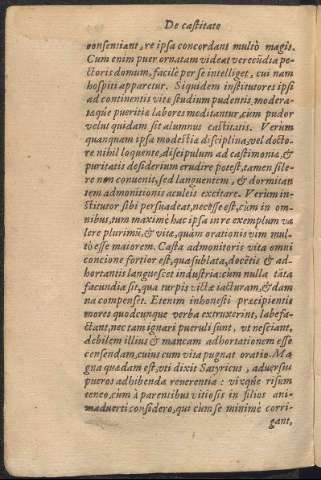 De castitate
consentiant, re ipsa concordant multò magis.
Cum enim puer ornatam videat verecūdia pe-
ctoris domum, facilè per se intelliget, cui nam
hospiti apparetur. Siquidem institutores ipsi
ad continentis vitæ studium pudentis, modera-
tæque pueritiæ labores meditantur, cum pudor
velut quidam sit alumnus castitatis. Verùm
quanquam ipsa modestiæ disciplina, vel docto-
re nihil loquente, discipulum ad castimoniæ, &
puritatis desiderium erudire potest, tamen sile-
re non conuenit, sed languentem, & dormitan
tem admonitionis aculeis excitare. Verùm in-
stitutor sibi persuadeat, necesse est, cùm in om-
nibus, tum maximè hac ipsa in re exemplum va
lere plurimū, & vitæ, quàm orationis vim mul-
tò esse maiorem. Casta admonitoris vita omni
concione fortior est, qua sublata, docētis & ad-
hortantis languescet industria: cùm nulla tāta
facundia sit, qua turpis vitæ iacturam, & dam
na compenset. Etenim inhonesti præcipientis
mores quodcunque verba extruxerint, labefa-
ctant, nec tam ignari pueruli sunt, vt nesciant,
debilem illius & mancam adhortationem esse
censendam, cuius cum vita pugnat oratio. Ma
gna quædam est, vti dixit Satyricus, aduersus
pueros adhibenda reuerentia: vixq́ue risum
teneo, cùm à parentibus vitiosis in filios ani-
maduerti considero, qui cùm se minimè corri-
gant,